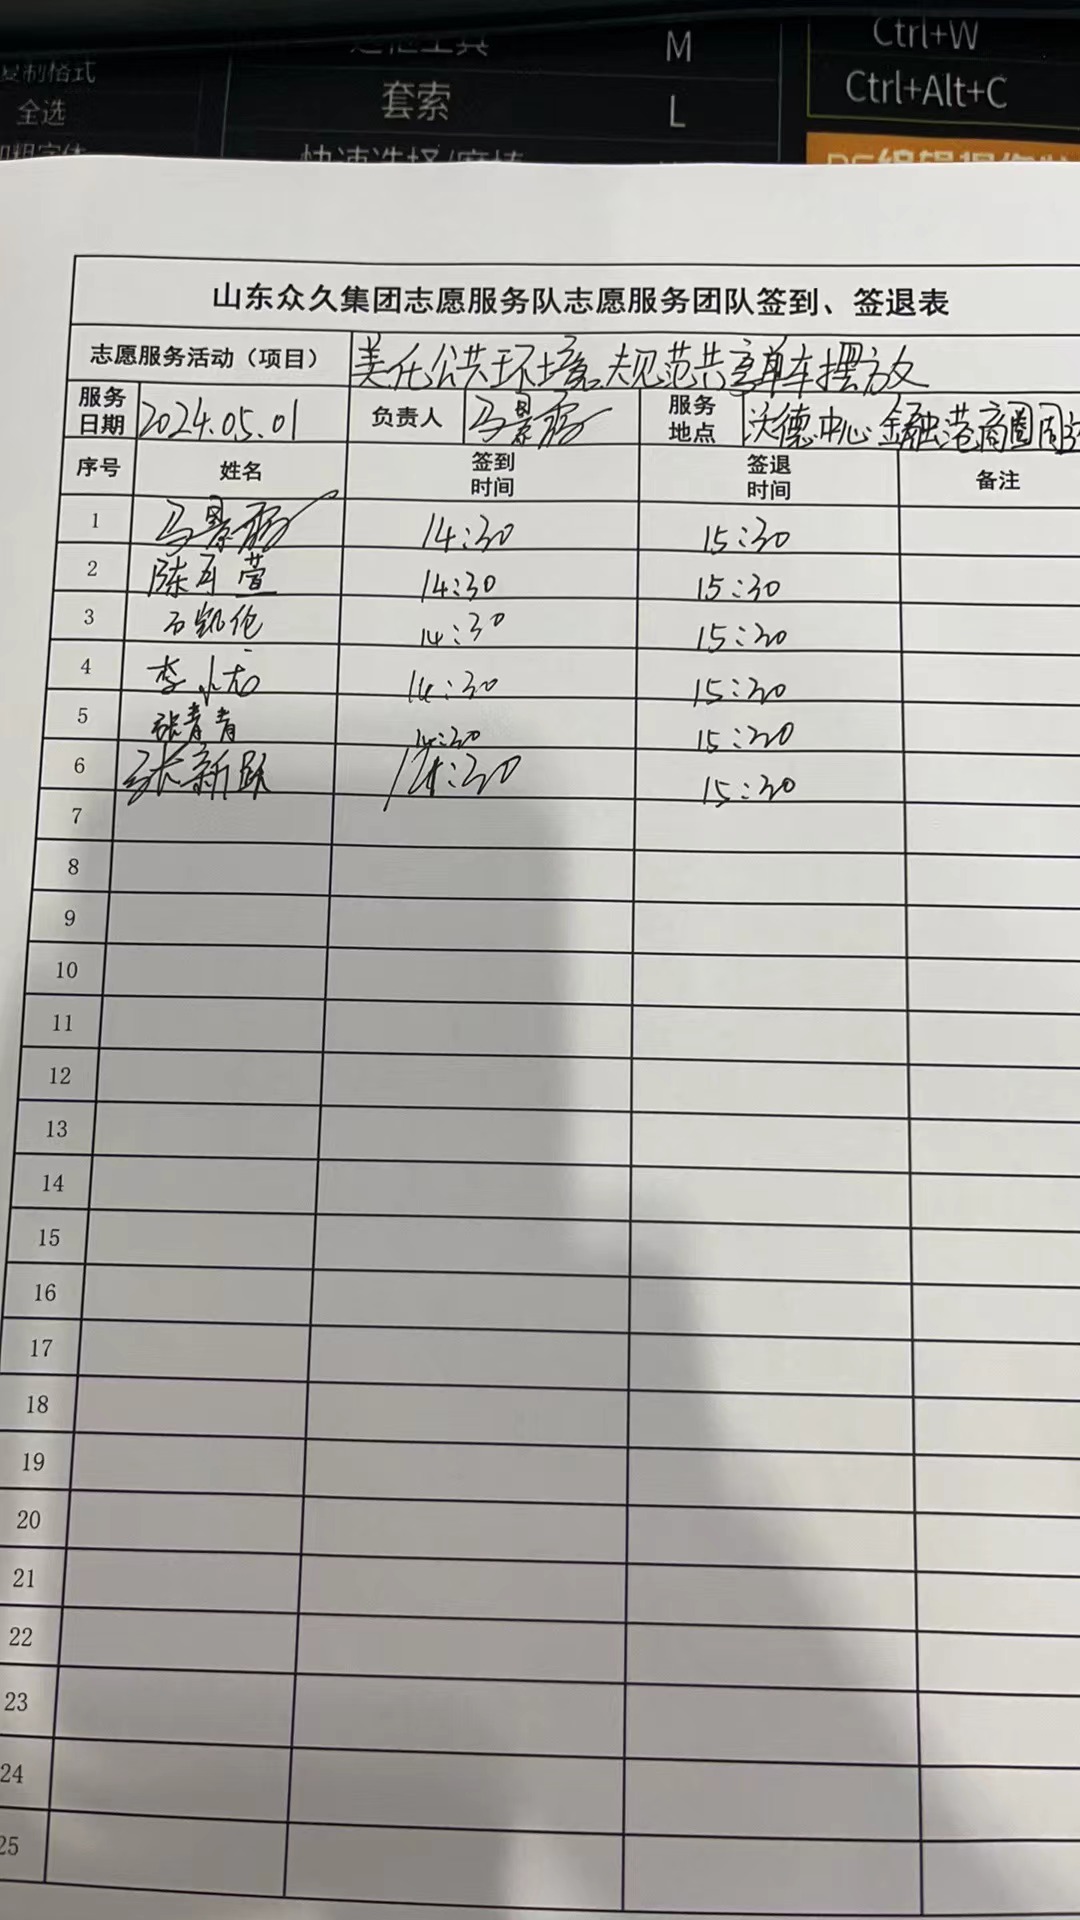 M
Ctrl+W
复制格式
全选
套索
L
Ctrl+Alt+C
山东众久集团志愿服务队志愿服务团队签到、签退表
志愿服务活动（项目） 美化公共环境 规范共享单车摆放
服务日期 2024.05.01 负责人 马景 服务地点 沃德中心金融港商圈周边
序号 姓名 签到时间 签退时间 备注
1 马景 14:30 15:30
2 陈 萱 14:30 15:30
3 石凯伦 14:30 15:30
4 李小龙 14:30 15:30
5 张青青 14:30 15:30
6 张新跃 14:30 15:30
7
8
9
10
11
12
13
14
15
16
17
18
19
20
21
22
23
24
25